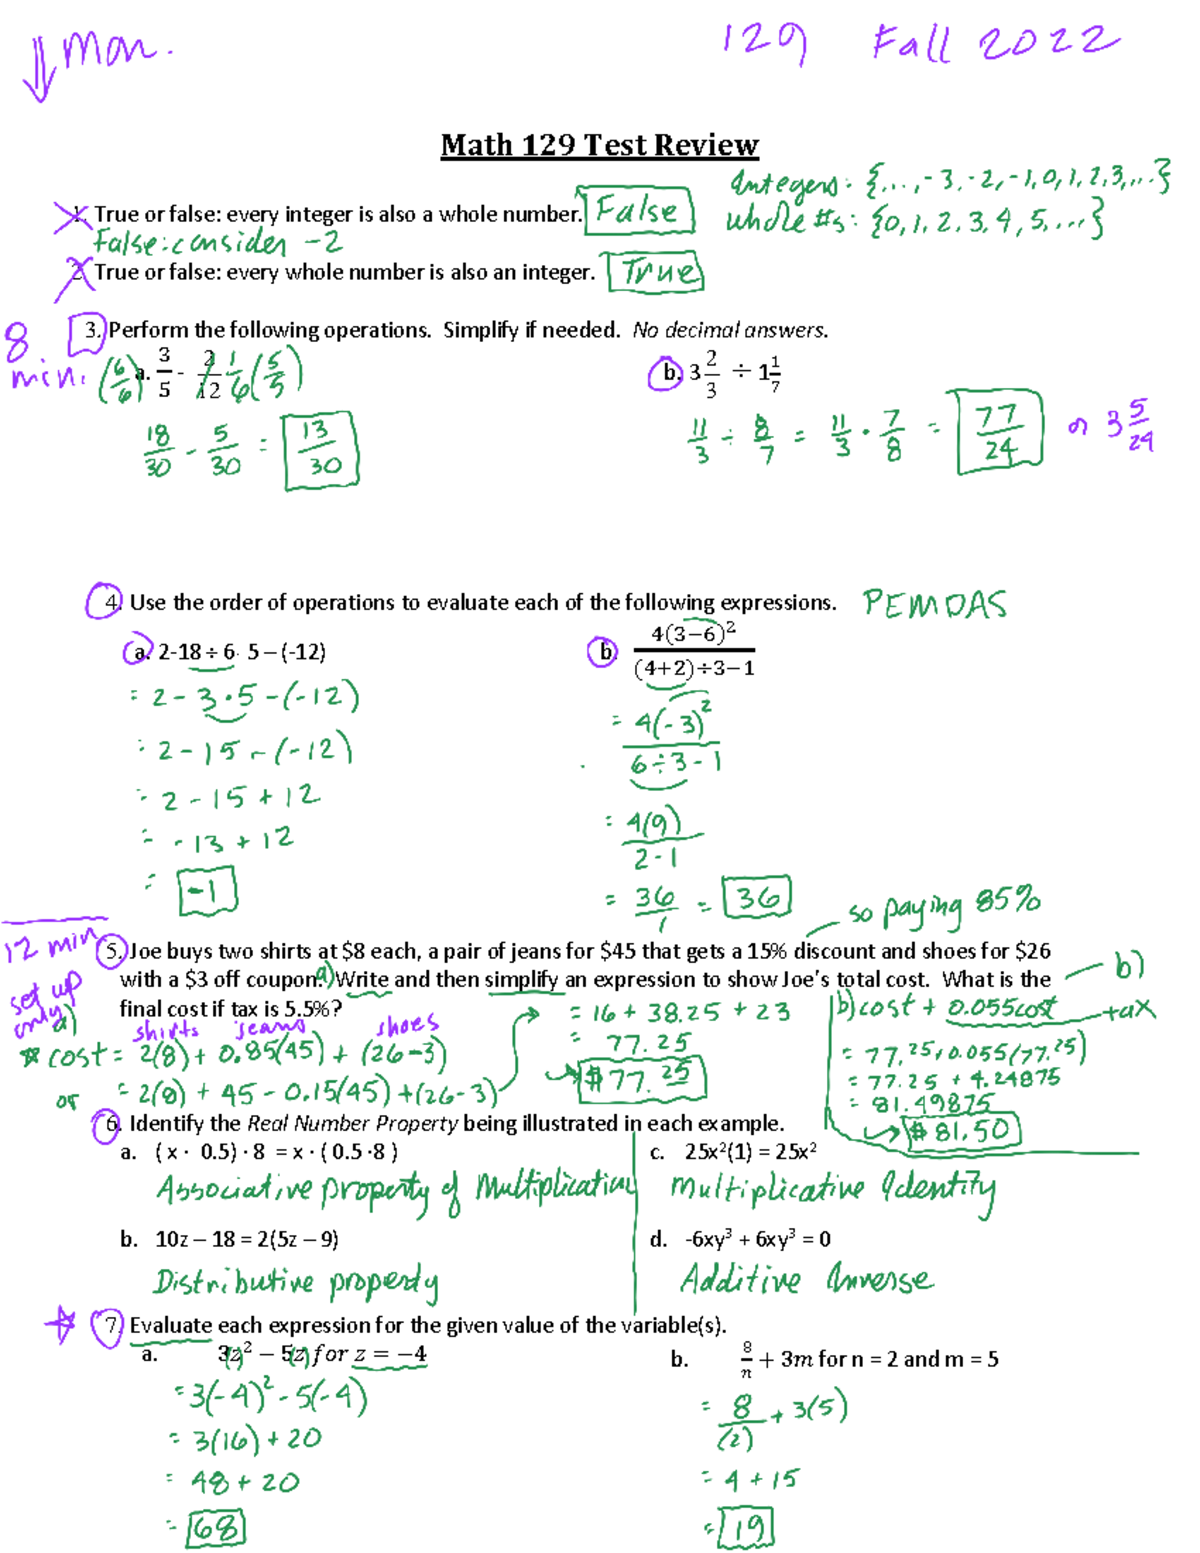 ↓ Mon. 129 Fall 2022
Math 129 Test Review
Integers: {...,-3,-2,-1,0,1,2,3,...}
1. True or false: every integer is also a whole number. False
Whole #s: {0,1,2,3,4,5,...}
False: consider -2
2. True or false: every whole number is also an integer. True
8 min.
3. Perform the following operations. Simplify if needed. No decimal answers.
(6/6) a. 3/5 - 2/12 1/6 (5/5)
b. 3 2/3 ÷ 1 1/7
18/30 - 5/30 = 13/30
11/3 ÷ 8/7 = 11/3 · 7/8 = 77/24 or 3 5/24
4. Use the order of operations to evaluate each of the following expressions. PEMDAS
a. 2-18 ÷ 6· 5 – (-12)
= 2 - 3·5 - (-12)
= 2 - 15 - (-12)
= 2 - 15 + 12
= -13 + 12
= -1
b. 4(3−6)²/(4+2)÷3−1
= 4(-3)²/6÷3-1
= 4(9)/2-1
= 36/1 = 36
so paying 85%
12 min
set up only a)
5. Joe buys two shirts at $8 each, a pair of jeans for $45 that gets a 15% discount and shoes for $26
with a $3 off coupon. a) Write and then simplify an expression to show Joe's total cost. What is the b)
final cost if tax is 5.5%?
shirts jeans shoes
* cost = 2(8) + 0.85(45) + (26-3)
or = 2(8) + 45 - 0.15(45) + (26-3)
= 16 + 38.25 + 23
= 77.25
$77.25
b) cost + 0.055cost tax
= 77.25+0.055(77.25)
= 77.25 + 4.24875
= 81.49875
$81.50
6. Identify the Real Number Property being illustrated in each example.
a. ( x · 0.5) · 8 = x · ( 0.5 ·8 )
Associative property of Multiplication
c. 25x²(1) = 25x²
Multiplicative Identity
b. 10z – 18 = 2(5z – 9)
Distributive property
d. -6xy³ + 6xy³ = 0
Additive Inverse
7. Evaluate each expression for the given value of the variable(s).
a. 3z² − 5z for z = −4
= 3(-4)² - 5(-4)
= 3(16) + 20
= 48 + 20
= 68
b. 8/n + 3m for n = 2 and m = 5
= 8/(2) + 3(5)
= 4 + 15
= 19